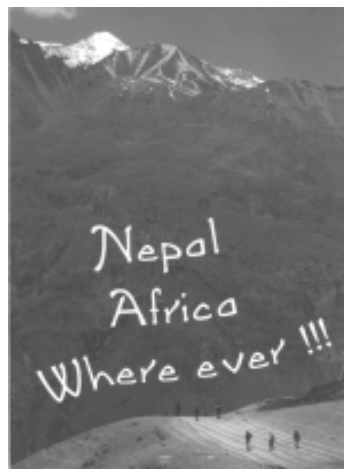 Nepal
Africa
Where ever !!!